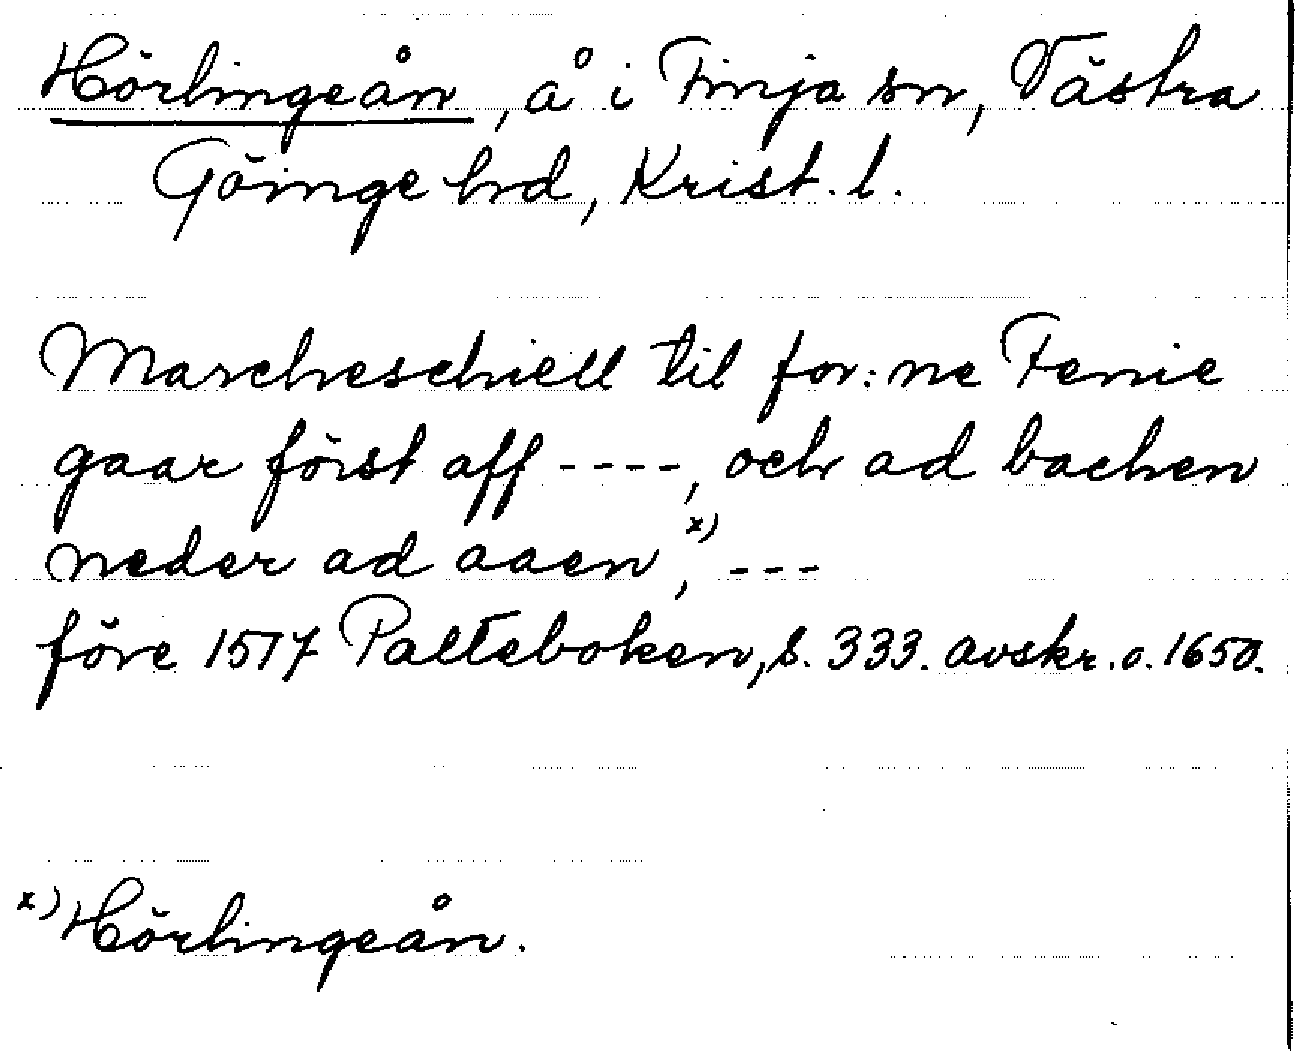 Hörlingeån, å i Finja sn, Västra
Göinge hrd, Krist. l.
Marcheschiell til for:ne Fenie
gaar först aff ----, och ad bachen
neder ad aaen x), ---
före 1517 Palteboken, s. 333. avskr. o. 1650.
x) Hörlingeån.